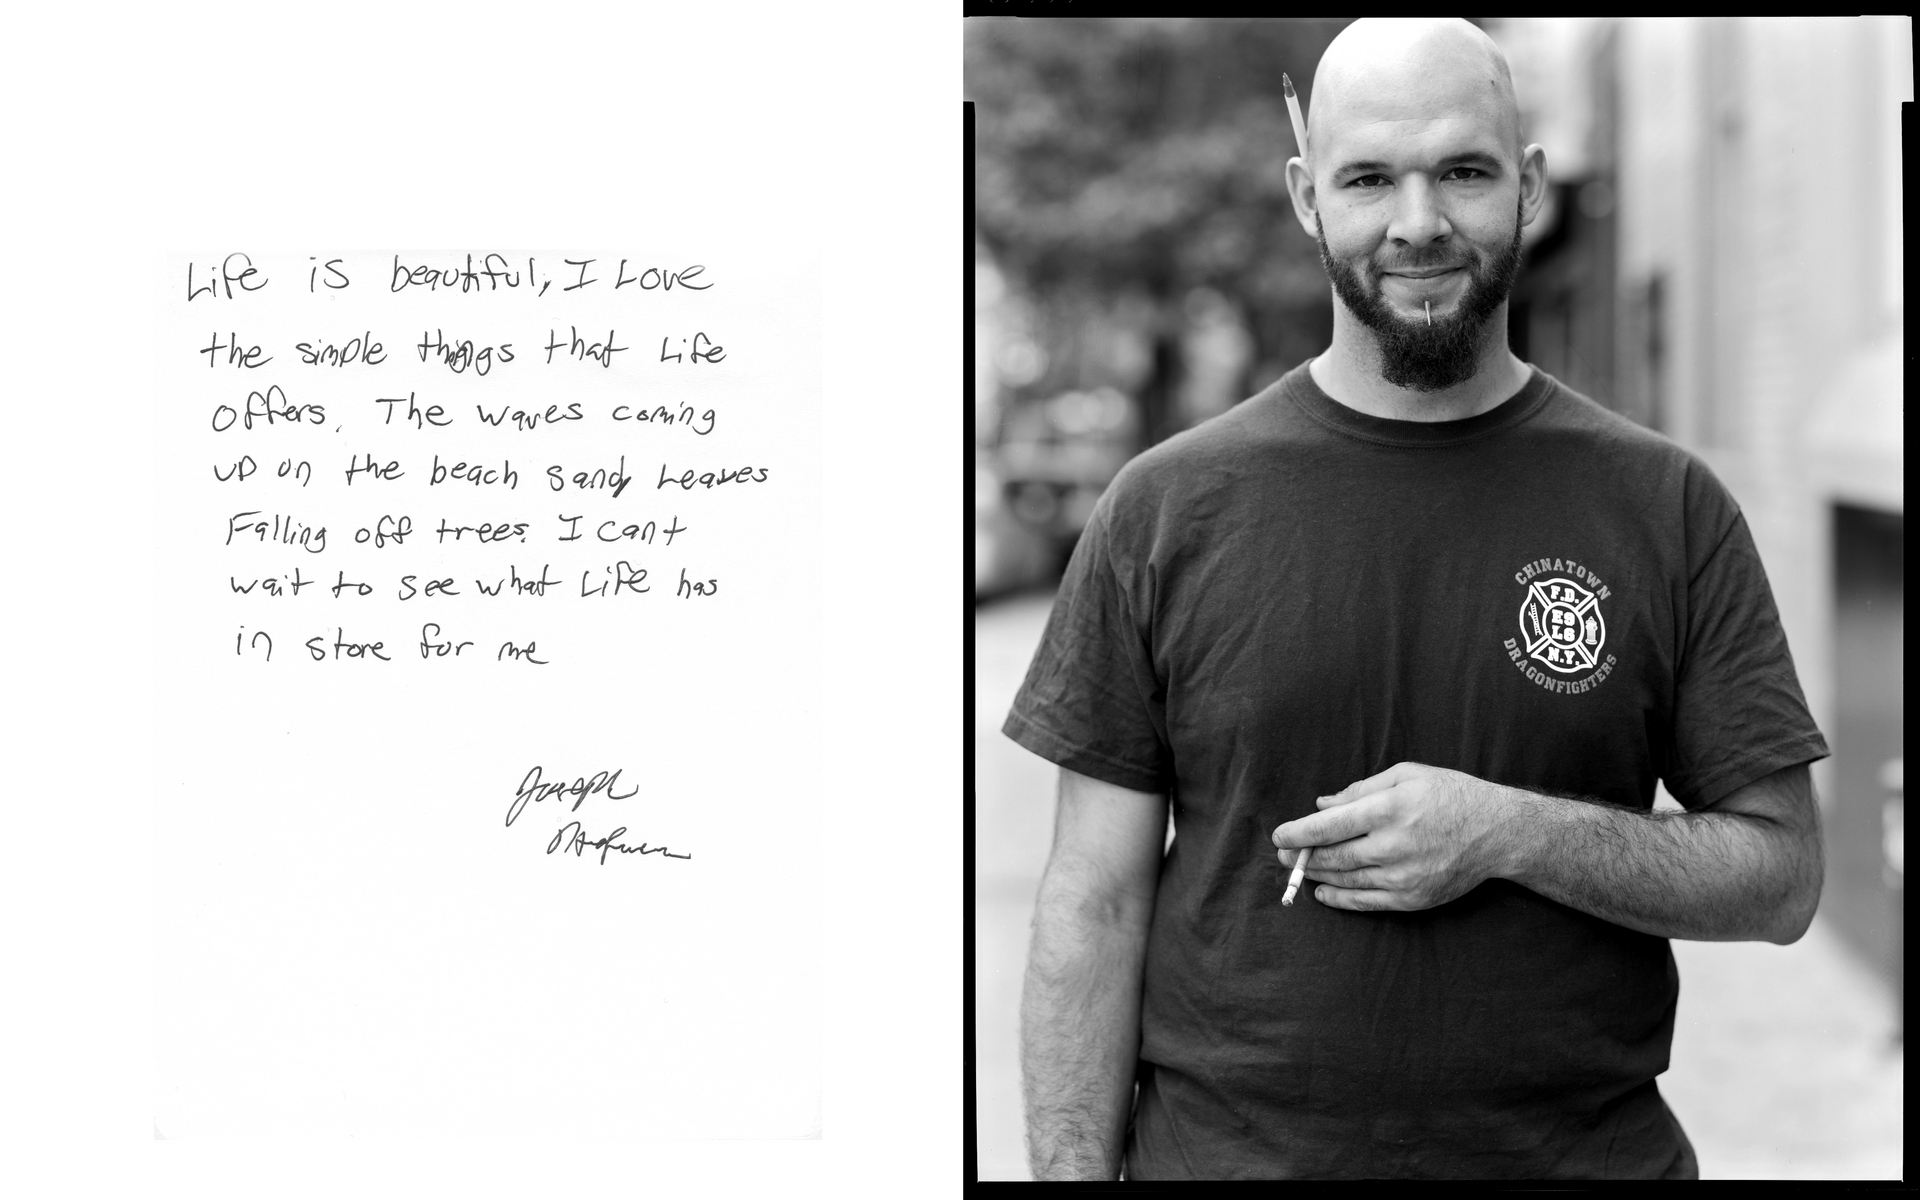 Life is beautiful, I Love
the simple things that Life
offers. The waves coming
up on the beach sand, Leaves
Falling off trees. I cant
wait to see what Life has
in store for me
Joseph
CHINATOWN
F.D.
E9
L6
N.Y.
DRAGONFIGHTERS